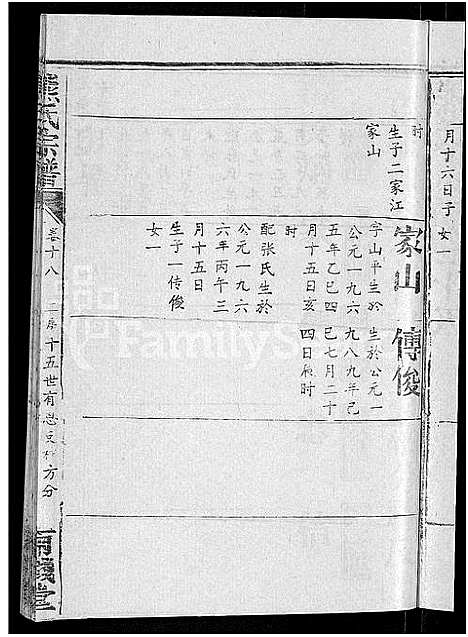 月十六日子女一
时
生子二家江
家山
家山
字山平生於
公元一九六
五年乙巳四
月十五日亥
时
配张氏生於
公元一九六
六年丙午三
月十五日
生子一传俊
女一
傳俊
生於公元一
九八九年己
巳七月二十
四日辰时
熊氏宗譜
卷十八
十五世有
方分
堂
FamilyS